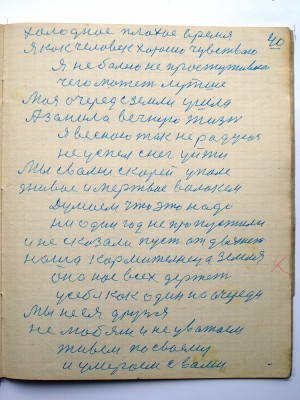 40
холодное плохое время
я как человек хорошо чувствваю
я не болею не простуживаюс
чего может лутше
моя очеред с земли ушла
язанила вечную жизн
я весною так не радуюся
не успел снег уйти
мы с вами скорей упале
живое и мертвое волокем
думаем что это надо
ни один год не пропустили
и не сказали пуст отдохнет
наша кормителница земля
она нас всех держет
у себя как один на очереди
мы не ея друзя
не любям и не уважаем
живем по своему
и умераем с вами